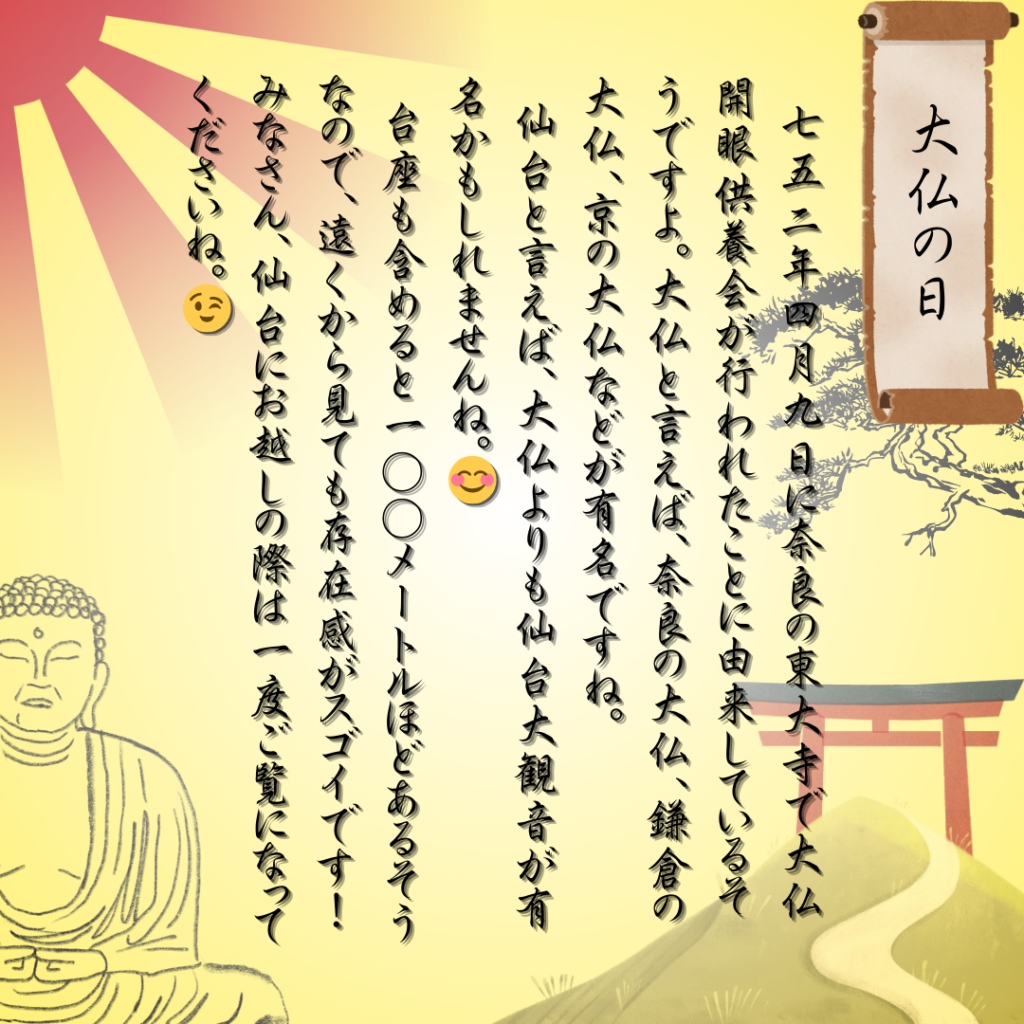 大仏の日
七五二年四月九日に奈良の東大寺で大仏
開眼供養会が行われたことに由来しているそ
うですよ。大仏と言えば、奈良の大仏、鎌倉の
大仏、京の大仏などが有名ですね。
仙台と言えば、大仏よりも仙台大観音が有
名かもしれませんね。😊
台座も含めると一〇〇メートルほどあるそう
なので、遠くから見ても存在感がスゴイです!
みなさん、仙台にお越しの際は一度ご覧になって
くださいね。😉